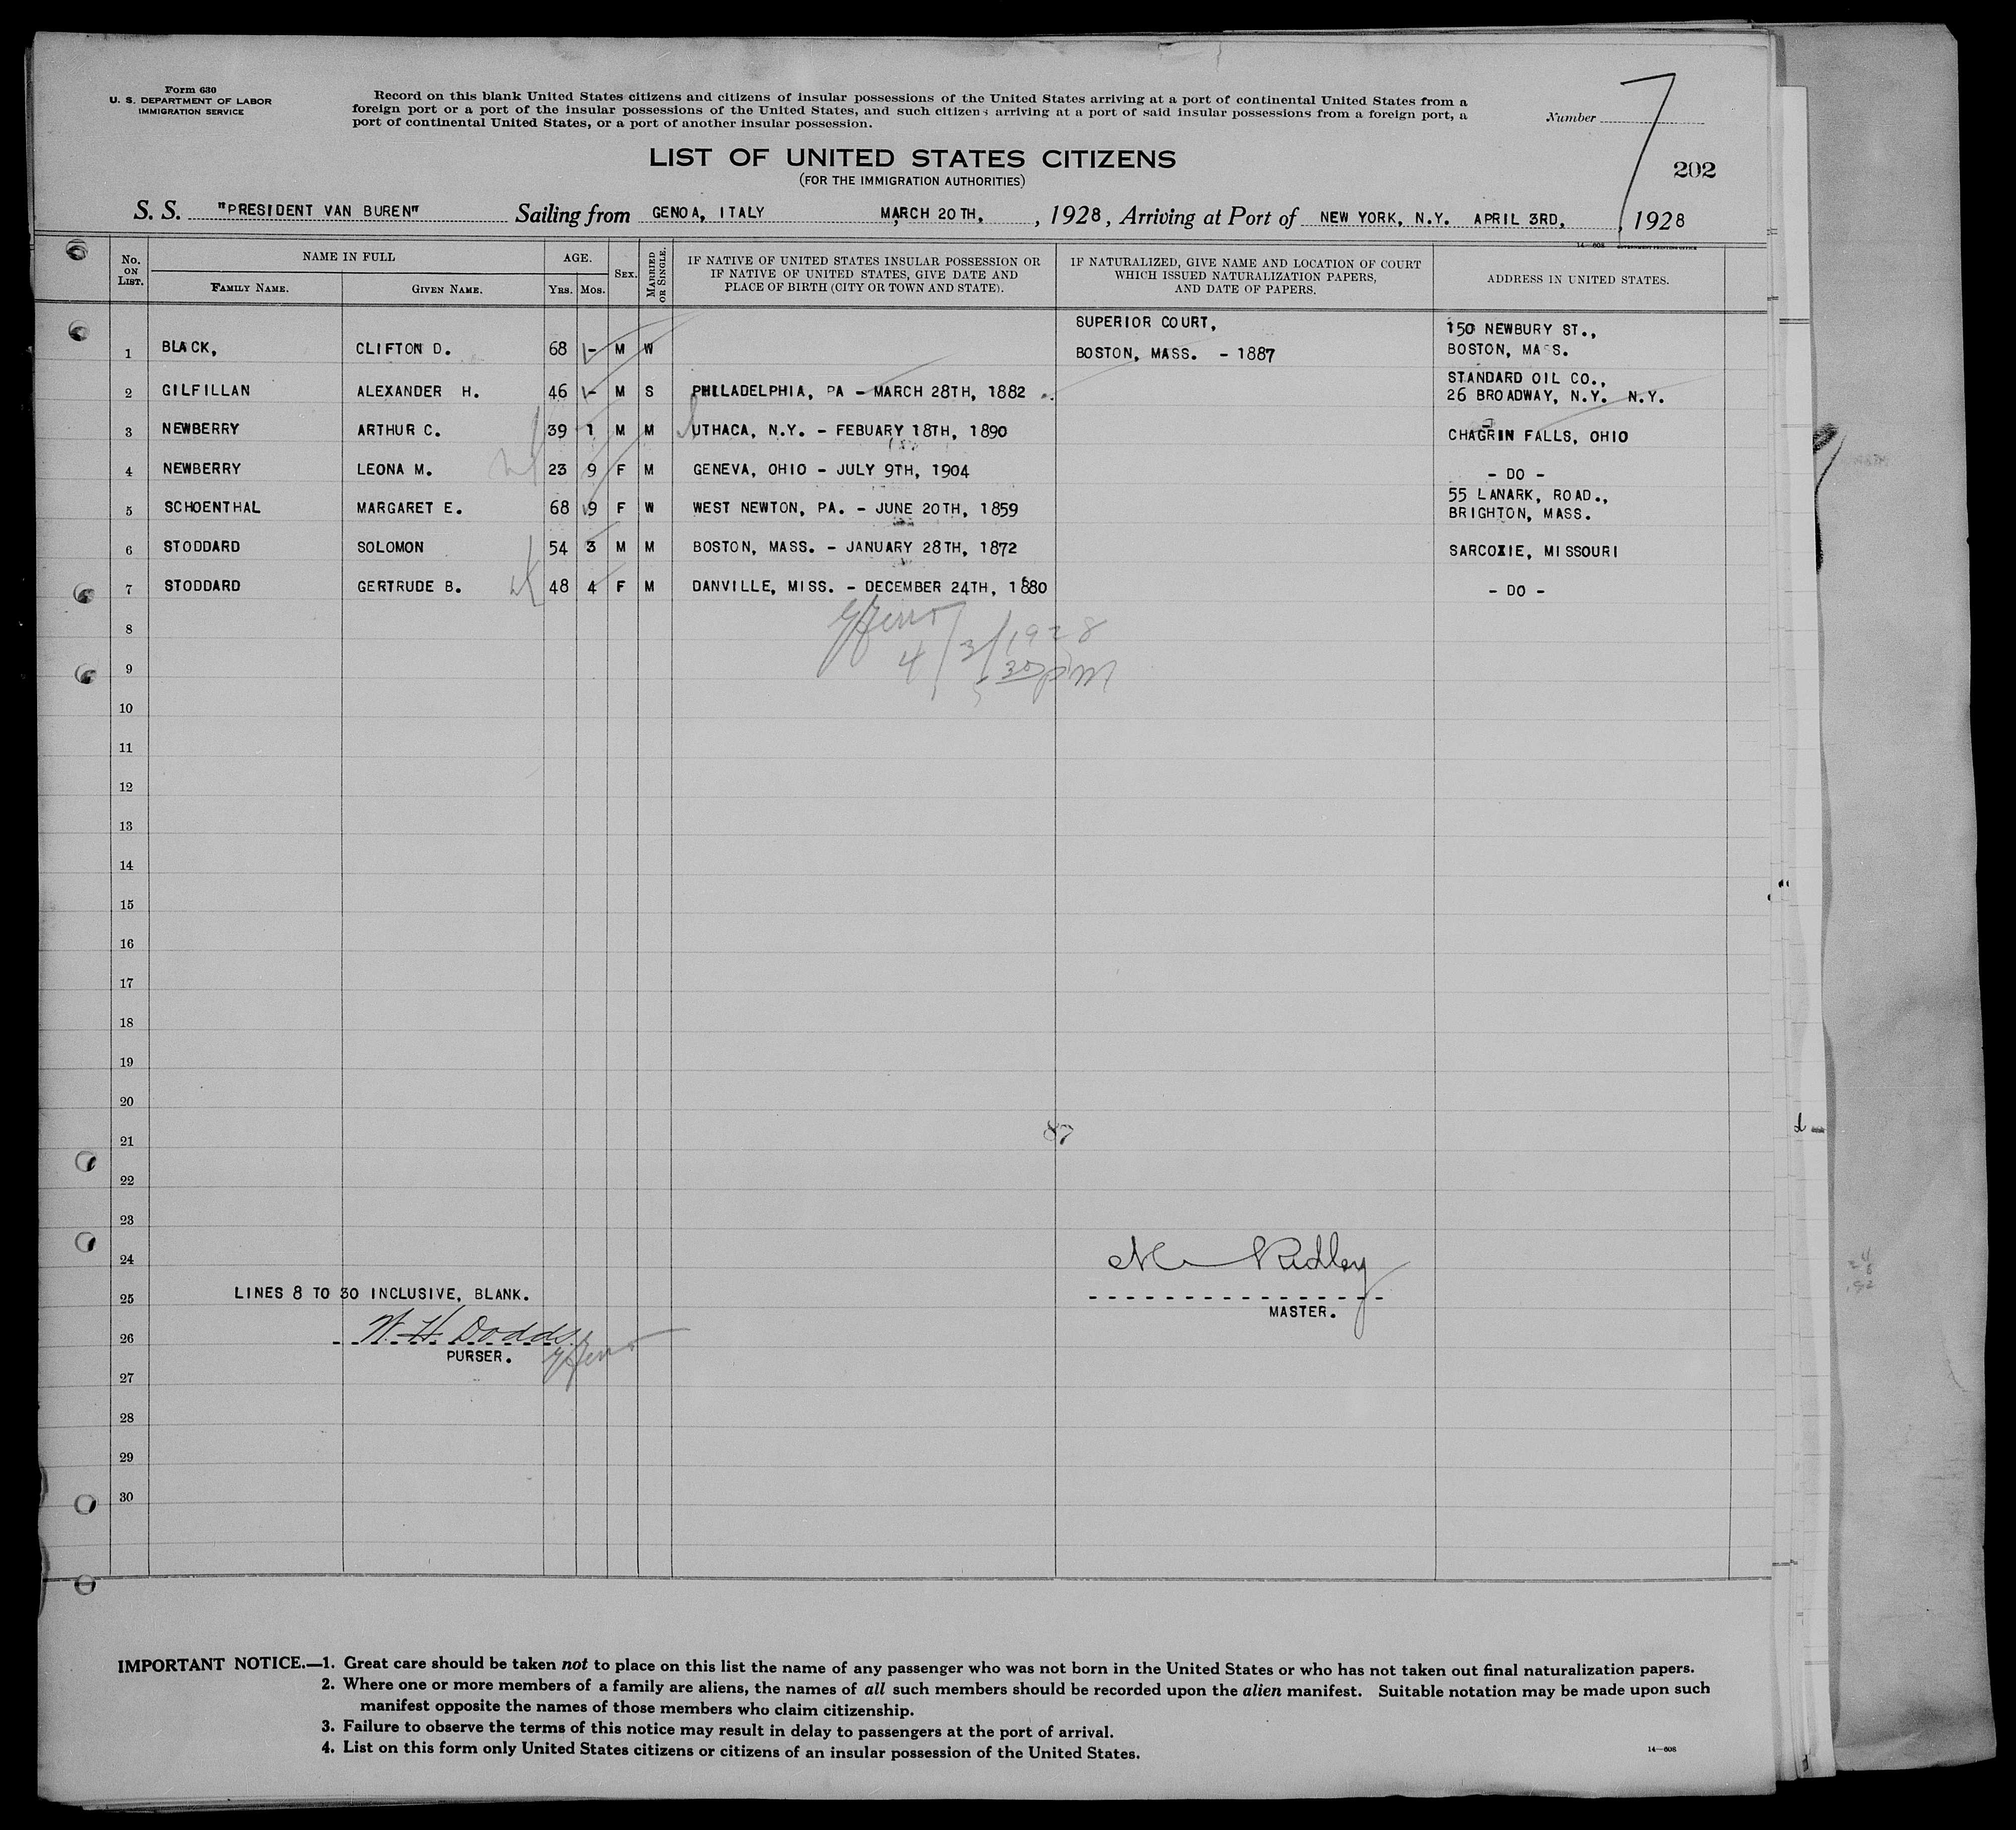 Form 630
U. S. DEPARTMENT OF LABOR
IMMIGRATION SERVICE
Record on this blank United States citizens and citizens of insular possessions of the United States arriving at a port of continental United States from a
foreign port or a port of the insular possessions of the United States, and such citizens arriving at a port of said insular possessions from a foreign port, a
port of continental United States, or a port of another insular possession.
Number 7
202
LIST OF UNITED STATES CITIZENS
(FOR THE IMMIGRATION AUTHORITIES)
S. S. "PRESIDENT VAN BUREN" Sailing from GENOA, ITALY MARCH 20TH, , 1928, Arriving at Port of NEW YORK, N.Y. APRIL 3RD, , 1928
14—608 GOVERNMENT PRINTING OFFICE
No. ON LIST. NAME IN FULL FAMILY NAME. GIVEN NAME. AGE. YRS. MOS. SEX. MARRIED OR SINGLE. IF NATIVE OF UNITED STATES INSULAR POSSESSION OR IF NATIVE OF UNITED STATES, GIVE DATE AND PLACE OF BIRTH (CITY OR TOWN AND STATE). IF NATURALIZED, GIVE NAME AND LOCATION OF COURT WHICH ISSUED NATURALIZATION PAPERS, AND DATE OF PAPERS. ADDRESS IN UNITED STATES.
SUPERIOR COURT, 150 NEWBURY ST.,
1 BLACK, CLIFTON D. 68 - M W BOSTON, MASS. - 1887 BOSTON, MASS.
STANDARD OIL CO.,
2 GILFILLAN ALEXANDER H. 46 - M S PHILADELPHIA, PA - MARCH 28TH, 1882 26 BROADWAY, N.Y. N.Y.
3 NEWBERRY ARTHUR C. 39 1 M M UTHACA, N.Y. - FEBUARY 18TH, 1890 CHAGRIN FALLS, OHIO
4 NEWBERRY LEONA M. 23 9 F M GENEVA, OHIO - JULY 9TH, 1904 - DO -
55 LANARK, ROAD.,
5 SCHOENTHAL MARGARET E. 68 9 F W WEST NEWTON, PA. - JUNE 20TH, 1859 BRIGHTON, MASS.
6 STODDARD SOLOMON 54 3 M M BOSTON, MASS. - JANUARY 28TH, 1872 SARCOXIE, MISSOURI
7 STODDARD GERTRUDE B. 48 4 F M DANVILLE, MISS. - DECEMBER 24TH, 1880 - DO -
8
4/3/1928
9
30 PM
10
11
12
13
14
15
16
17
18
19
20
21
87
22
23
24
M Ridley
25 LINES 8 TO 30 INCLUSIVE, BLANK.
MASTER.
26 W. H. Dodds
PURSER.
27
28
29
30
IMPORTANT NOTICE.—1. Great care should be taken not to place on this list the name of any passenger who was not born in the United States or who has not taken out final naturalization papers.
2. Where one or more members of a family are aliens, the names of all such members should be recorded upon the alien manifest. Suitable notation may be made upon such
manifest opposite the names of those members who claim citizenship.
3. Failure to observe the terms of this notice may result in delay to passengers at the port of arrival.
4. List on this form only United States citizens or citizens of an insular possession of the United States.
14—608